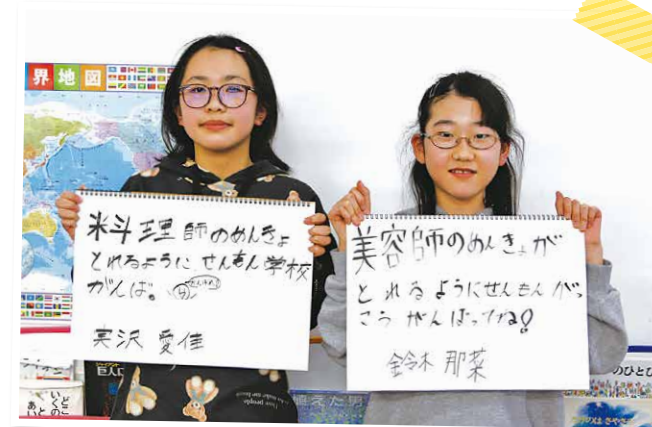 界地図
料理師のめんきょ
とれるように、せんもん学校
がんば。
実沢 愛佳
美容師のめんきょが
とれるようにせんもんがっ
こうがんばってね!
鈴木 那菜
巨人
植えた男
のひとび